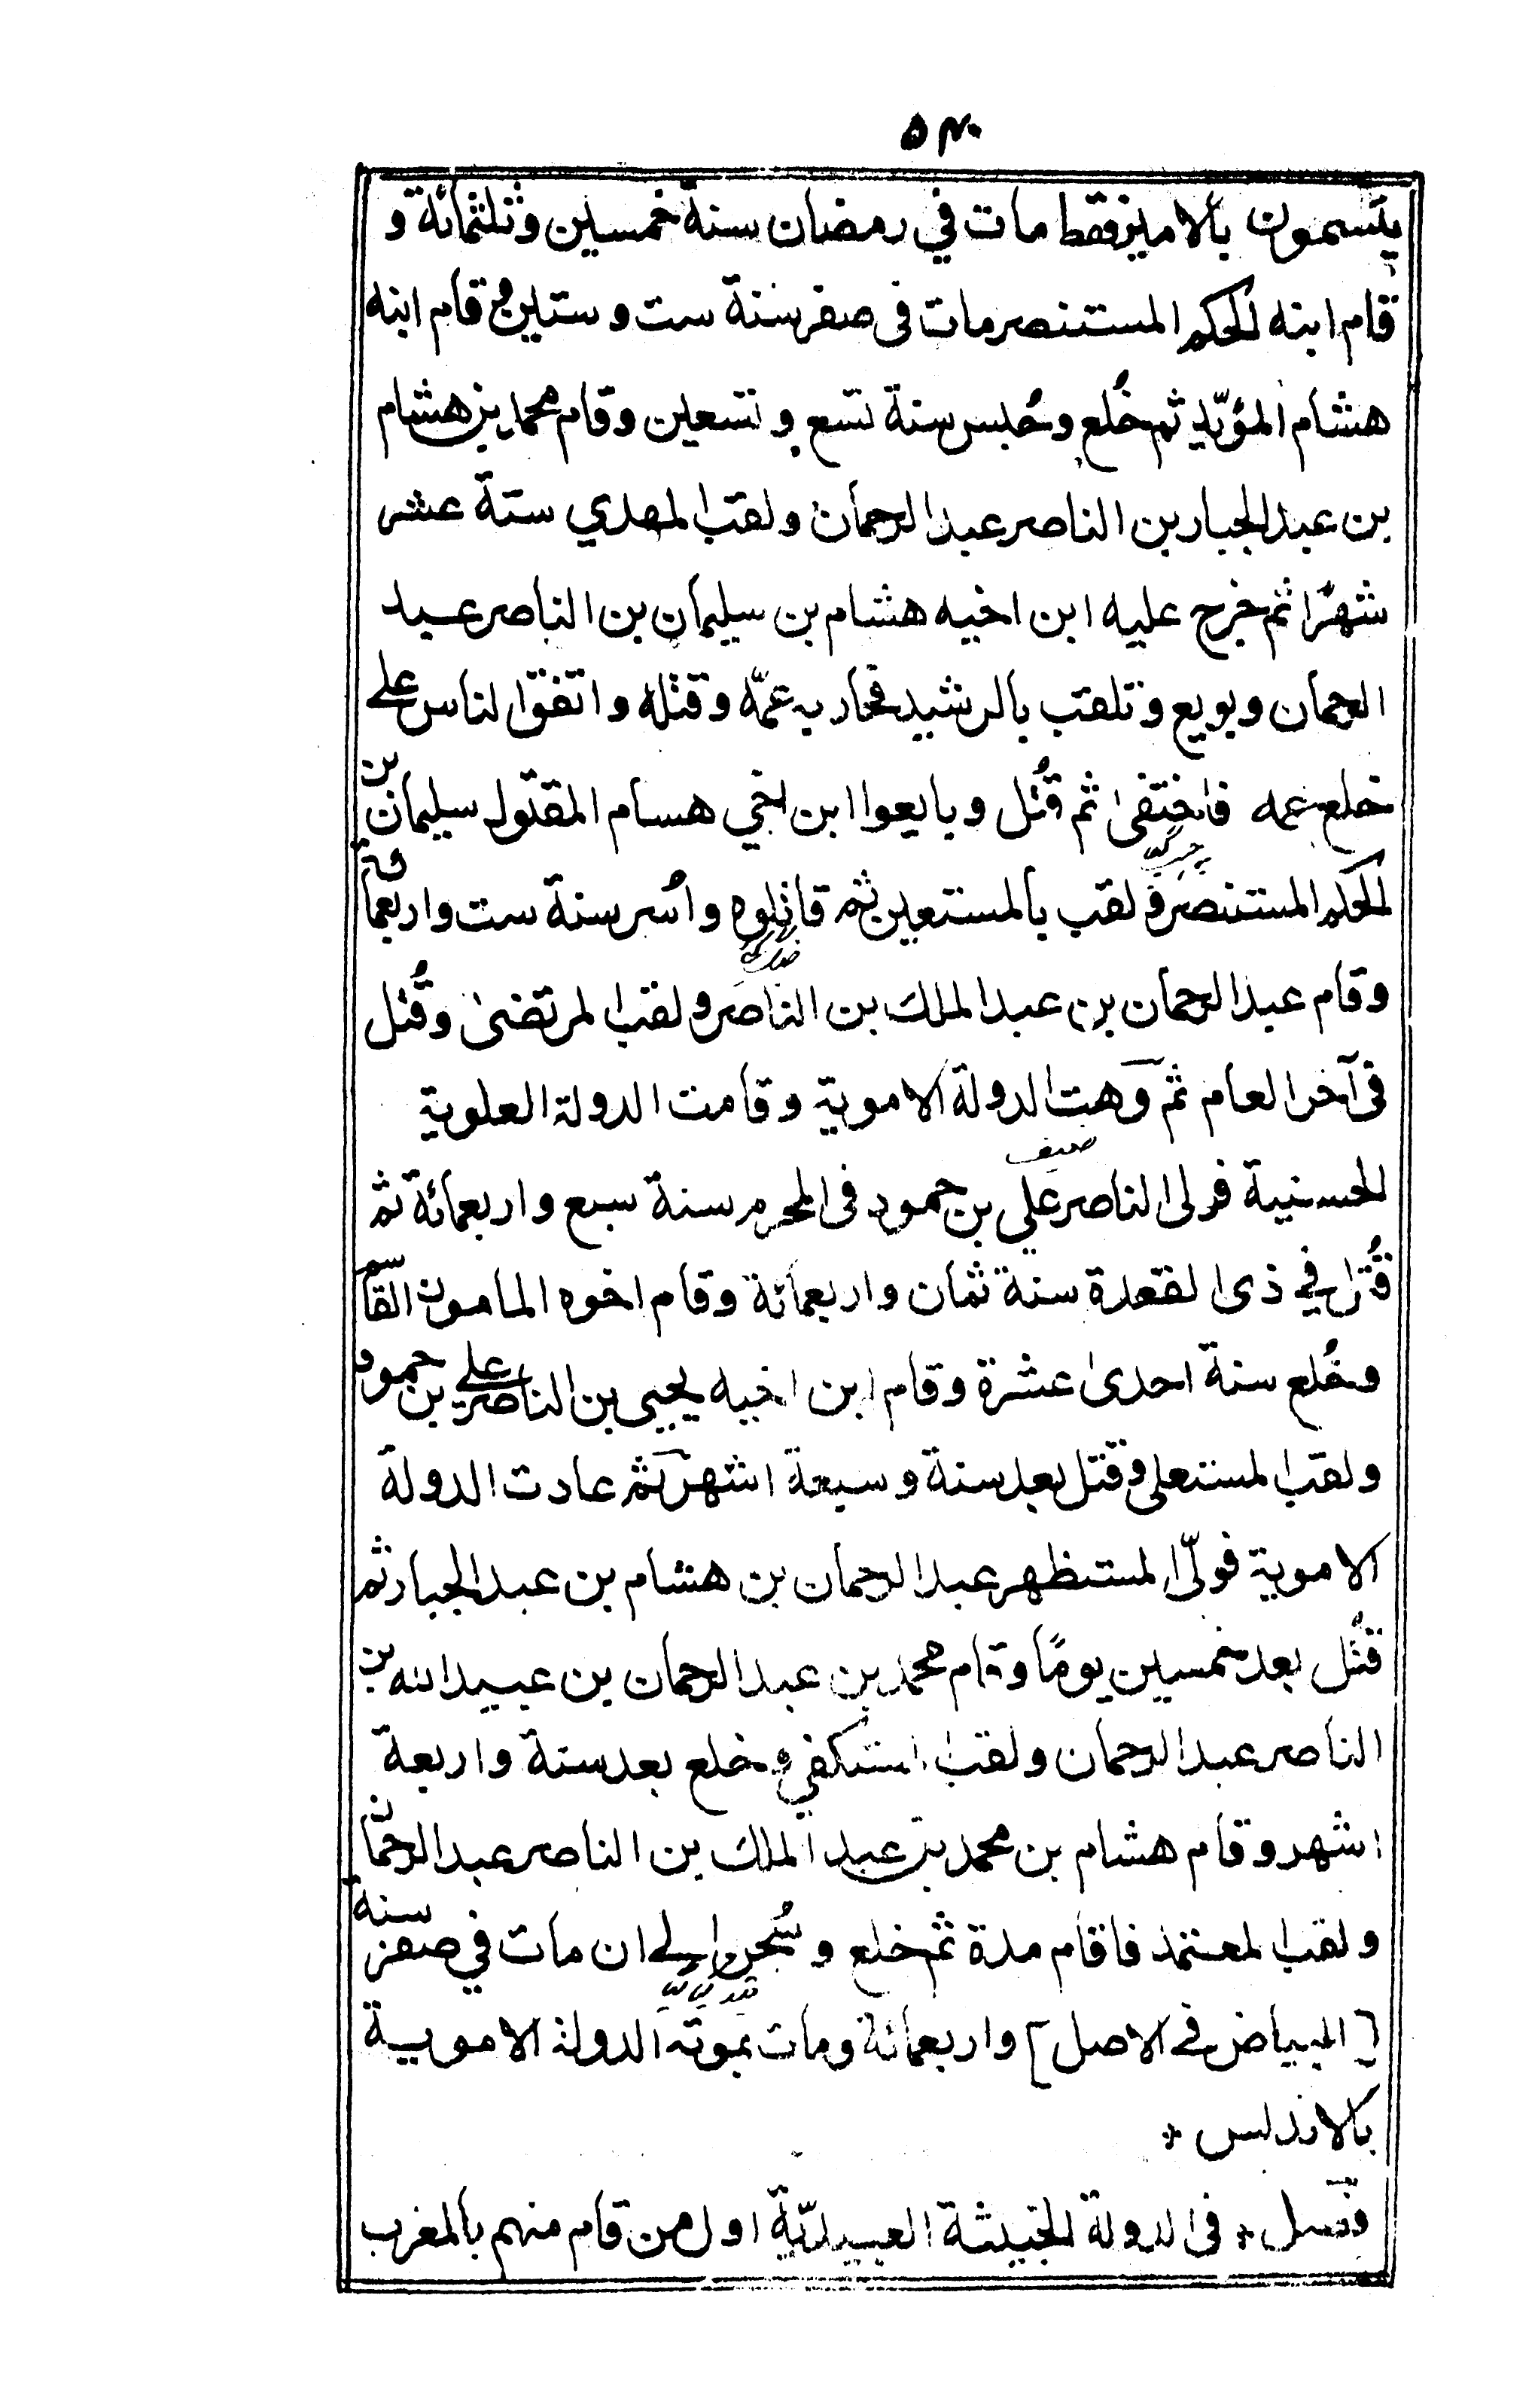 ٥٣٠
يتسمون بالامير فقط مات في رمضان سنة خمسين وثلثمائة و
قام ابنه الحكم المستنصر مات فى صفر سنة ست وستين ثم قام ابنه
هشام المؤيّد ثم خُلع وحُبس سنة تسع وتسعين وقام محمد بن هشام
بن عبد الجبار بن الناصر عبد الرحمان ولقب المهدي ستة عشر
شهرًا ثم خرج عليه ابن اخيه هشام بن سليمان بن الناصر عبد
الرحمان وبويع وتلقب بالرشيد فحاربه عمّه وقتله واتفق الناس على
خلع عمه فاختفىٰ ثم قُتل وبايعوا ابن اخي هسام المقتول سليمان بن
الحكم المستنصر ولقب بالمستعين ثم قاتلوه واُسر سنة ست واربعمائة
وقام عبد الرحمان بن عبد الملك بن الناصر ولقب المرتضىٰ وقُتل
فى آخر العام ثم وَهت الدولة الاموية وقامت الدولة العلوية
ضعيف
الحسنية فولى الناصر علي بن حمود فى المحرم سنة سبع واربعمائة ثم
قُتل في ذى القعدة سنة ثمان واربعمائة وقام اخوه المامون القاسم
وخُلع سنة احدىٰ عشرة وقام ابن اخيه يحيى بن الناصر علي بن حمود
ولقب المستعلى وقتل بعد سنة وسبعة اشهر ثم عادت الدولة
الاموية فولّى المستظهر عبد الرحمان بن هشام بن عبد الجبار ثم
قتُل بعد خمسين يومًا وقام محمد بن عبد الرحمان بن عبيد الله بن
الناصر عبد الرحمان ولقب المستكفي وخلع بعد سنة واربعة
اشهر وقام هشام بن محمد بن عبد الملك بن الناصر عبد الرحمان
ولقب المعتمد فاقام مدة ثم خلع وسُجن الى ان مات في صفر سنة
[البياض فى الاصل] واربعمائة ومات بموته الدولة الاموية
بالاندلس *
فصل * فى الدولة الخبيثة العبيديّة اول من قام منهم بالمغرب